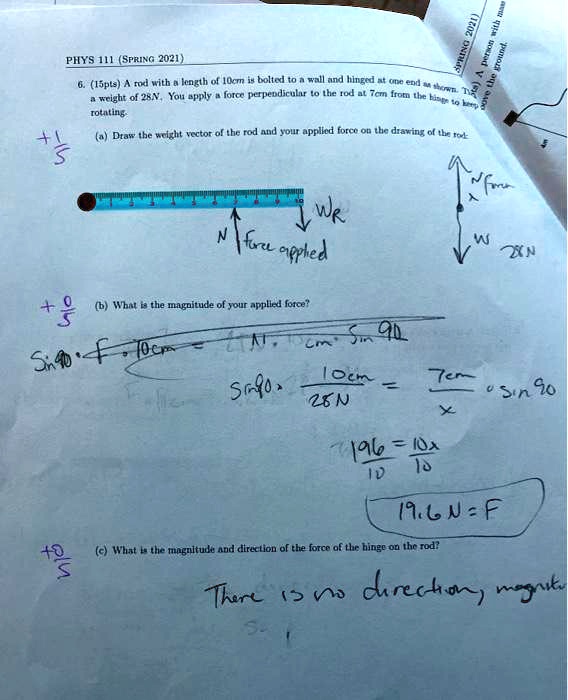 PHYS 111 (SPRING 2021)
6. (15pts) A rod with a length of 10cm is bolted to a wall and hinged at one end as shown. The
a weight of 28N. You apply a force perpendicular to the rod at 7cm from the hinge to keep
rotating.
SPRING 2021)
A person with mass
above the ground.
(a) Draw the weight vector of the rod and your applied force on the drawing of the rod:
+1/5
N Force applied
WR
N Force
x
W
28N
+0/5
(b) What is the magnitude of your applied force?
Sin90 · F · 10cm = N · cm · Sin 90
Sin90 · 10cm/28N = 7cm/x · sin 90
196/10 = 10x/10
19.6 N = F
+0/5
(c) What is the magnitude and direction of the force of the hinge on the rod?
There is no direction,